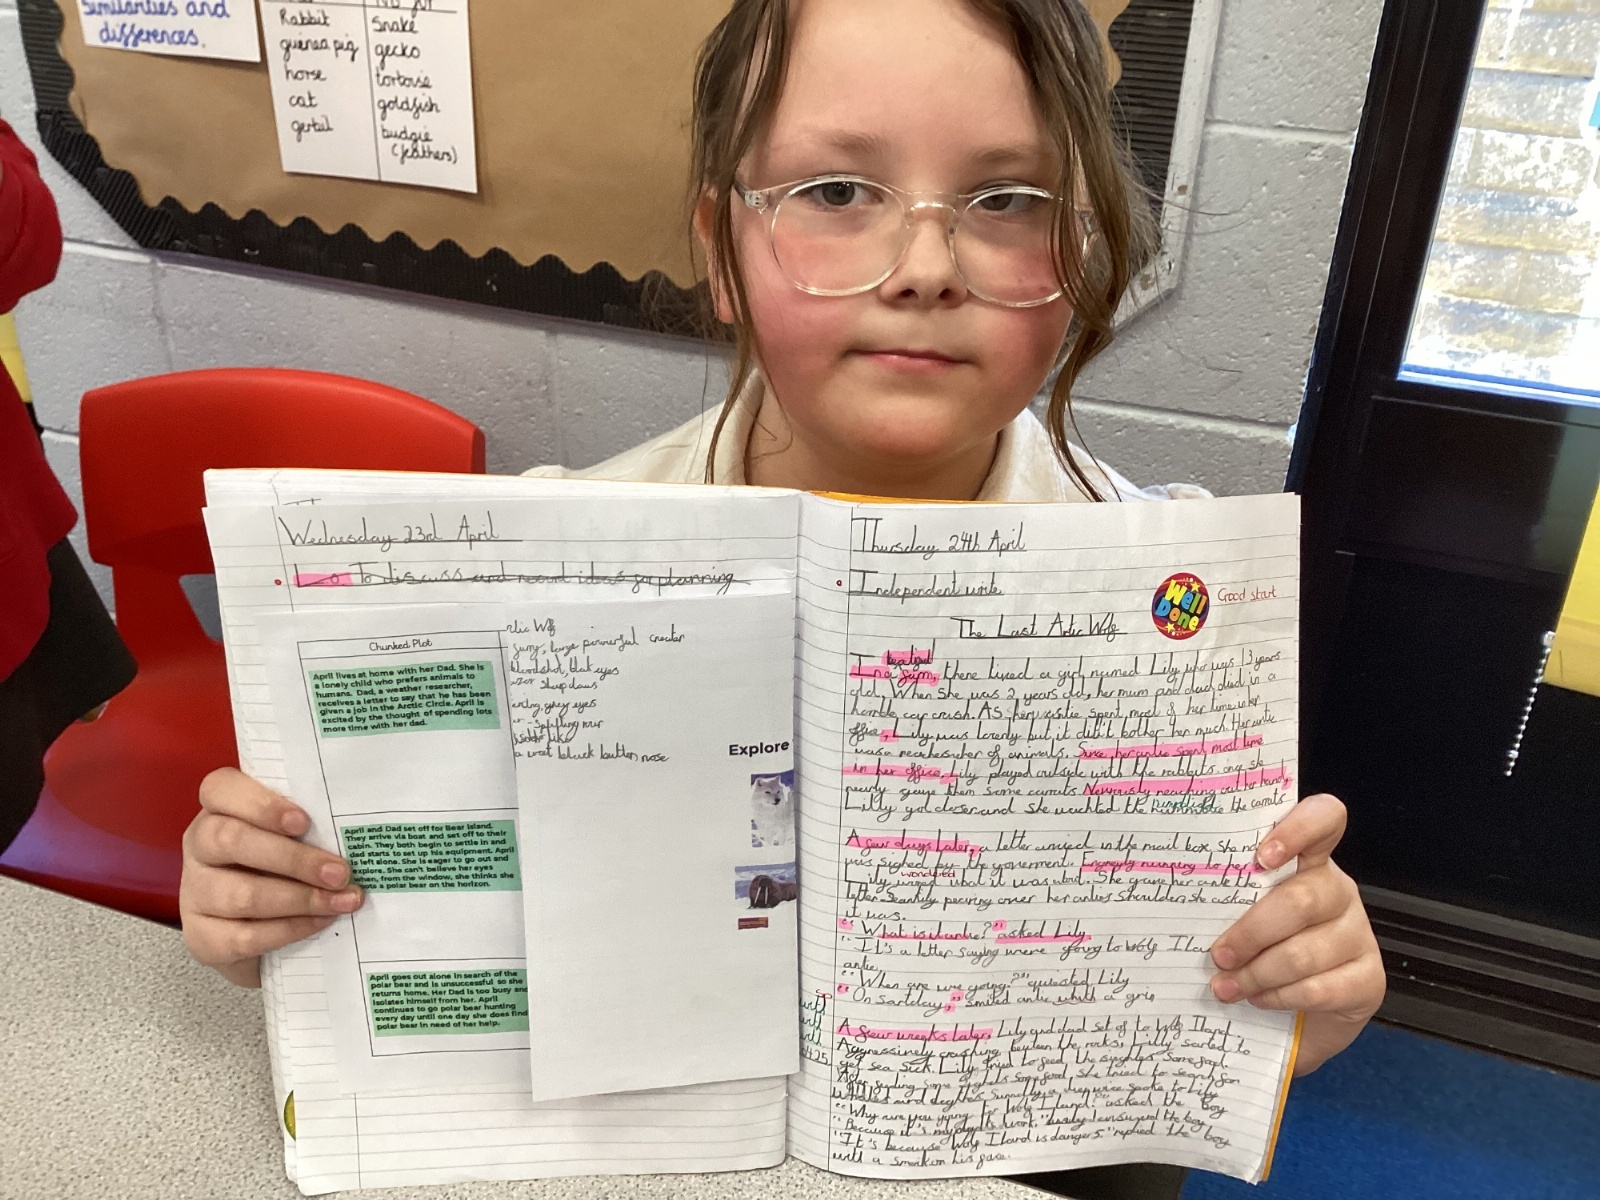 Similarities and
differences.
Rabbit
guinea pig
horse
cat
gerbil
Snake
gecko
tortoise
goldfish
budgie
(feathers)
Wednesday 23rd April
L.o To discuss and record ideas for planning
Chunked Plot
April lives at home with her Dad. She is
a lonely child who prefers animals to
humans. Dad, a weather researcher,
receives a letter to say that he has been
given a job in the Arctic Circle. April is
excited by the thought of spending lots
more time with her dad.
April and Dad set off for Bear Island.
They arrive via boat and set off to their
cabin. They both begin to settle in and
dad starts to set up his equipment. April
is left alone. She is eager to go out and
explore. She can't believe her eyes
when, from the window, she thinks she
a polar bear on the horizon.
April goes out alone in search of the
polar bear and is unsuccessful so she
returns home. Her Dad is too busy and
isolates himself from her. April
continues to go polar bear hunting
every day until one day she does find
polar bear in need of her help.
large powerful
eyes
grey eyes
a wet black button nose
Explore
Thursday 24th April
Independent write
Well
Done
Good start
The Last Artic Wolf
In a farm, there lived a girl named Lily who was 13 years
old. When she was 2 years old, her mum and dad died in a
horrible car crush. As her antie spent most of her time in her
office, Lily was lonely but it didn't bother her much. Her antie
was a reasheacher of animals. Since her antie spent most time
in her office, Lily played outside with the rabbits. she
gave them some carrots. Nervously reaching out her hand,
Lilly got closer and she wachted the the carrots
A few days later, a letter arrived in the mail box. She
was signed by the goverment. running to her
wondered
Lily what it was about. She gave her antie the
letter. peering over her anties shoulder, she asked
it was.
"What is it antie?" asked Lily
"It's a letter saying were going to Wolf
antie.
"When are we going?" Lily
"On Sartday," smiled antie with a grin
A few weeks later, Lily and dad set of to Wolf Iland.
Aggressively crashing the rocks, Lilly sarted to
get sea sick. Lily tried to feed the some food.
some food, she tried to search for
spoke to Lily
"Why are you going to Wolf Iland?" asked the boy
"Because it's my work," the boy
"It's because Wolf Iland is dangers." replied the boy
with a smirk on his face.